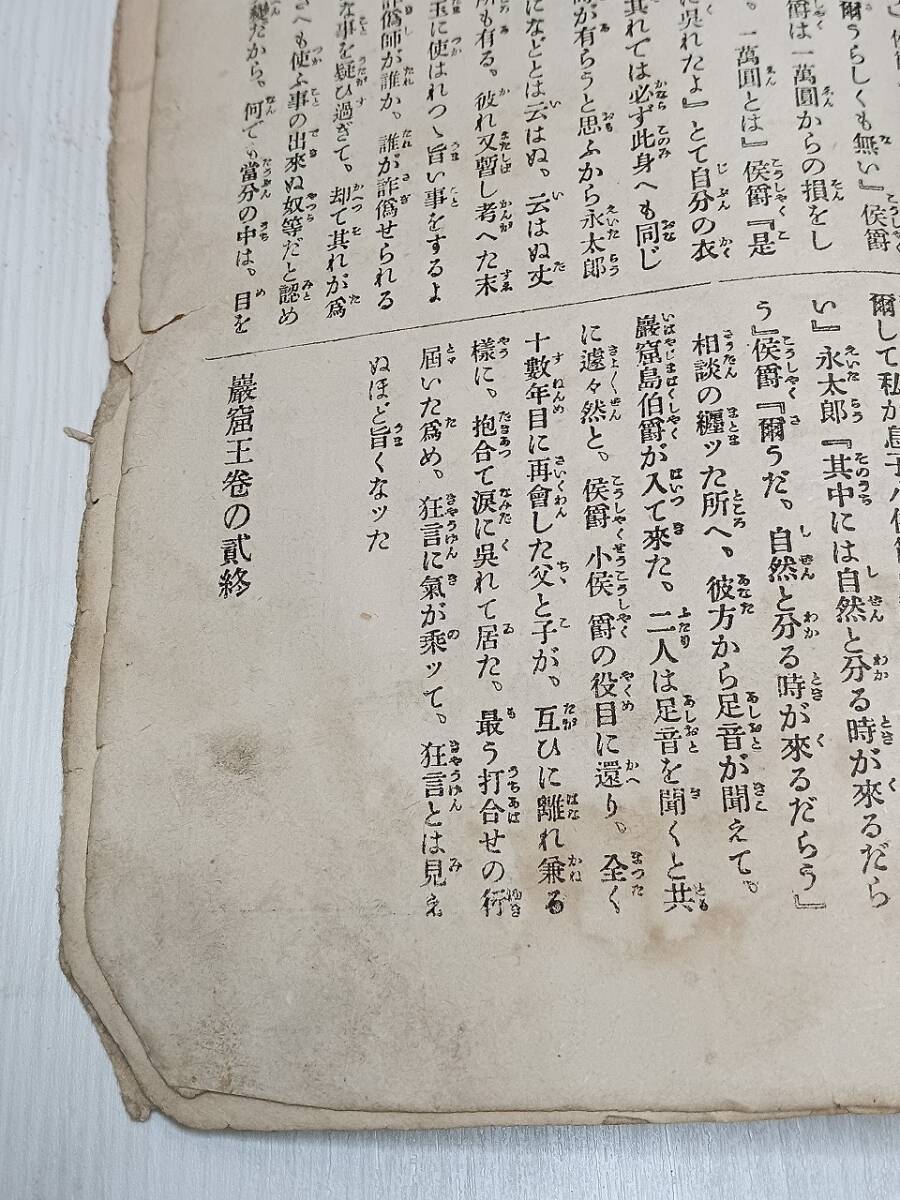 爾うらしくも無い』侯爵
爵は一萬圓からの損をし
。一萬圓とは』侯爵『是
に呉れたよ』とて自分の衣
其れでは必ず此身へも同じ
が有らうと思ふから永太郎
になどとは云はぬ。云はぬ丈
所も有る。彼れ又暫し考へた末
玉に使はれつゝ旨い事をするよ
詐僞師が誰か。誰が詐僞せられる
な事を疑ひ過ぎて。却て其れが爲
さへも使ふ事の出來ぬ奴等だと認め
だから。何でも當分の中は。目を
爾して私が息子小侯爵
い』永太郎『其中には自然と分る時が來るだら
う』侯爵『爾うだ。自然と分る時が來るだらう』
相談の纒ッた所へ、彼方から足音が聞えて。
巖窟島伯爵が入て來た。二人は足音を聞くと共
に遽々然と。侯爵 小侯爵の役目に還り。全く
十數年目に再會した父と子が。互ひに離れ兼る
樣に。抱合て涙に呉れて居た。最う打合せの行
屆いた爲め。狂言に氣が乘ッて。狂言とは見え
ぬほど旨くなッた
巖窟王卷の貳終